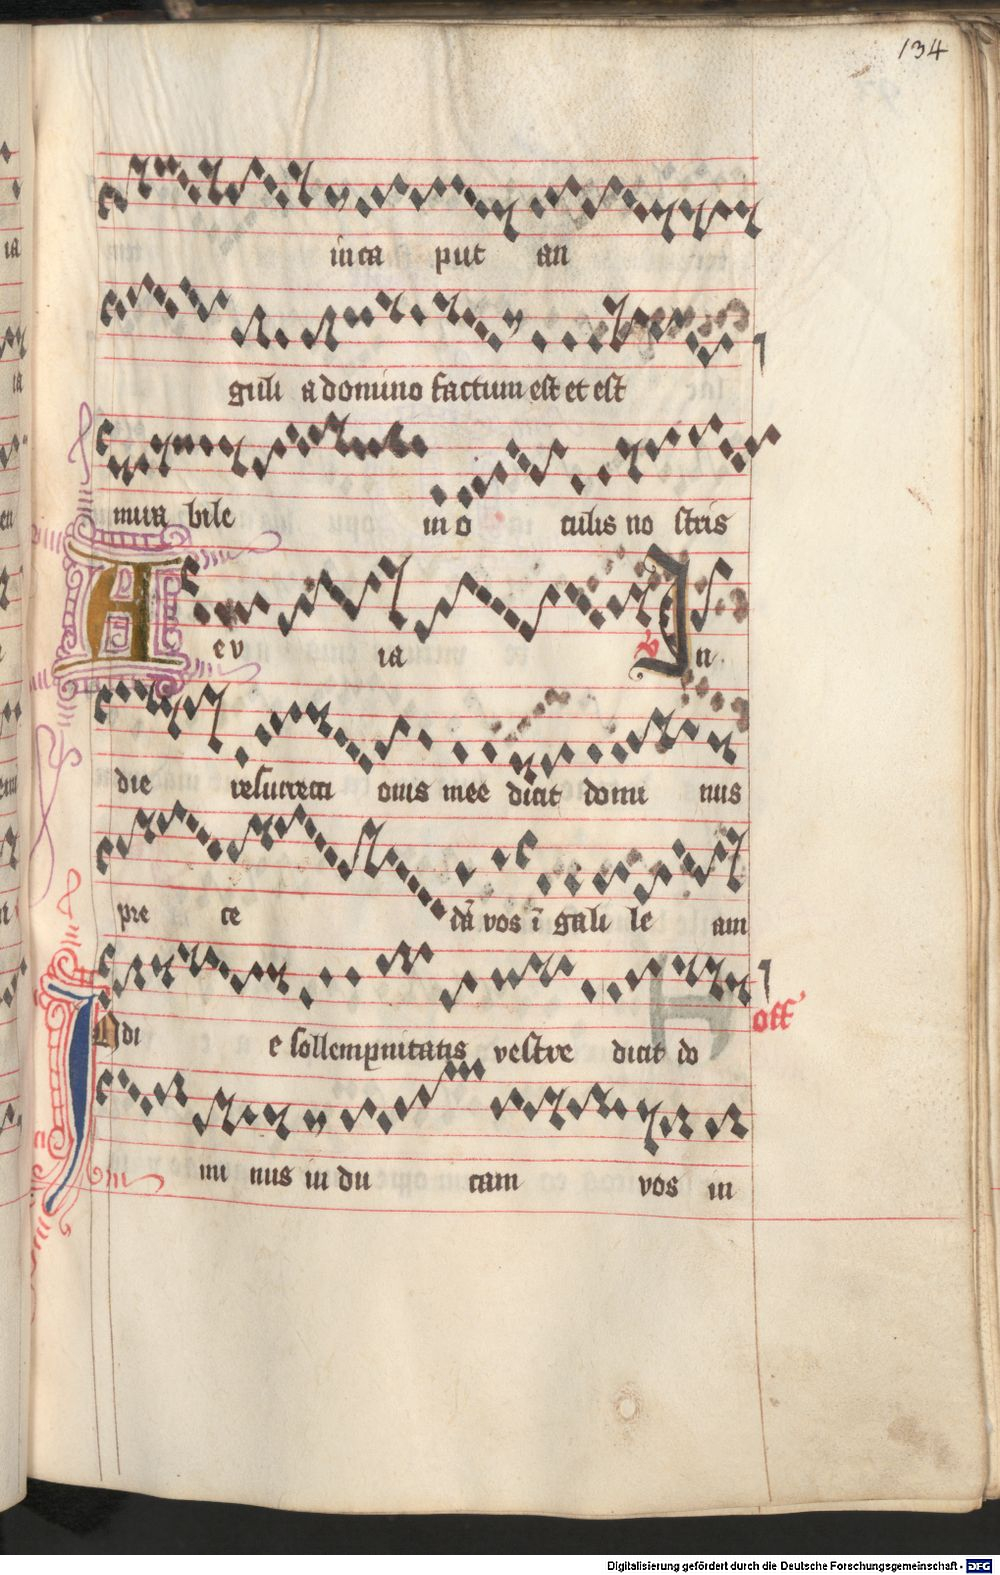 134
in ca put an
guli a domino factum est et est
mira bile in o culis no stris
A e v ia ℣ In
die resurrecti onis mee dicit domi nus
pre ce dā vos ī gali le am
In di e sollempnitatis vestre dicit do
off
mi nus in du cam vos in
Digitalisierung gefördert durch die Deutsche Forschungsgemeinschaft - DFG